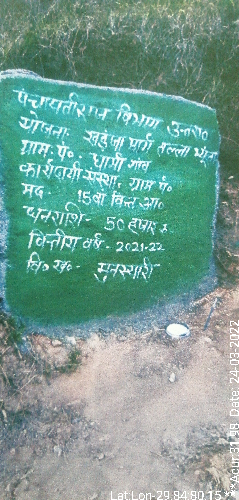 पंचायतीराज विभाग उत्तरा०
योजना खड़ंजा मार्ग तल्ला
ग्राम. पं०. धामी गाँव
कार्यदायी संस्था, ग्राम पं०
मद - 15वां वित्त आ०
धनराशि - 50 हजार रु
वित्तीय वर्ष - 2021-22
वि० ख० -
Lat Lon-29.84 80.15***Acu:31.98, Date: 24-03-2022